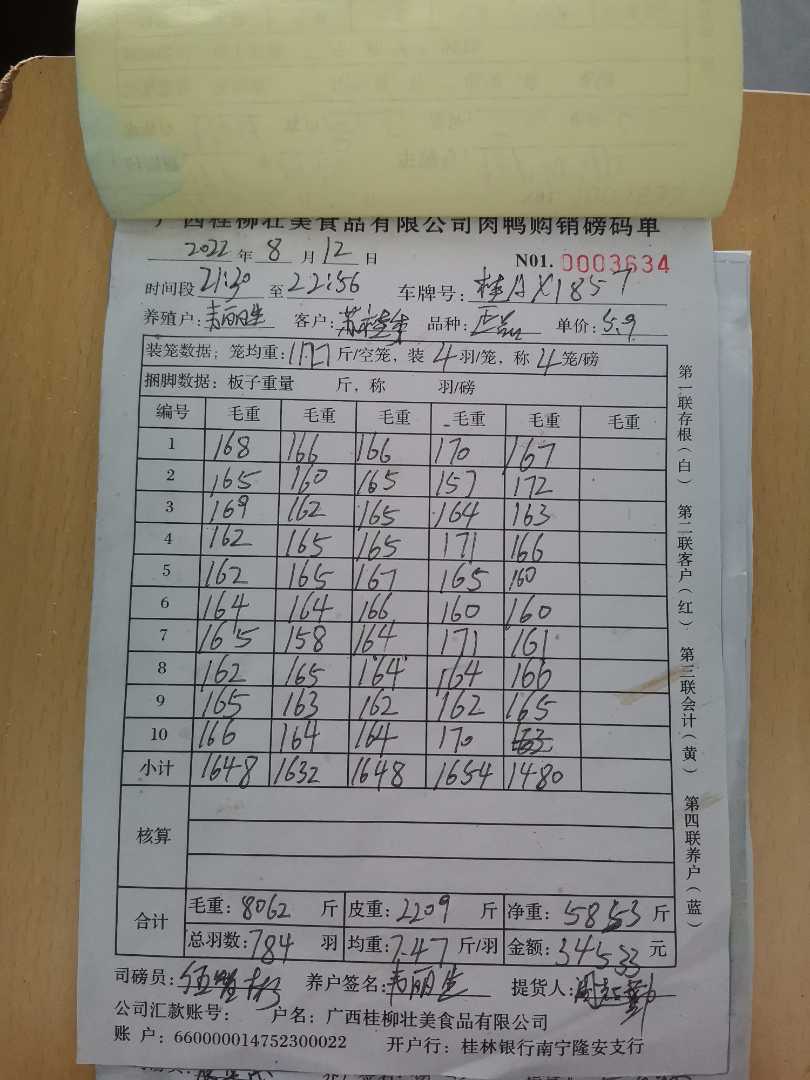 广西桂柳壮美食品有限公司肉鸭购销磅码单
2022 年 8 月 12 日 N01. 0003634
时间段 21:30 至 22:56 车牌号: 桂AX1857
养殖户: 韦丽生 客户: 品种: 正品 单价: 5.9
装笼数据; 笼均重: 斤/空笼, 装 4 羽/笼, 称 4 笼/磅
捆脚数据: 板子重量 斤, 称 羽/磅
编号 毛重 毛重 毛重 毛重 毛重 毛重
1 168 166 166 170 167
2 165 160 165 157 172
3 169 162 165 164 163
4 162 165 165 171 166
5 162 165 167 165 160
6 164 164 166 160 160
7 165 158 164 171 161
8 162 165 164 164 166
9 165 163 162 162 165
10 166 164 164 170
小计 1648 1632 1648 1654 1480
核算
合计 毛重: 8062 斤 皮重: 2209 斤 净重: 5853 斤
总羽数: 784 羽 均重: 7.47 斤/羽 金额: 34533 元
司磅员: 养户签名: 韦丽生 提货人:
公司汇款账号: 户名: 广西桂柳壮美食品有限公司
账 户: 660000014752300022 开户行: 桂林银行南宁隆安支行
第一联存根(白) 第二联客户(红) 第三联会计(黄) 第四联养户(蓝)